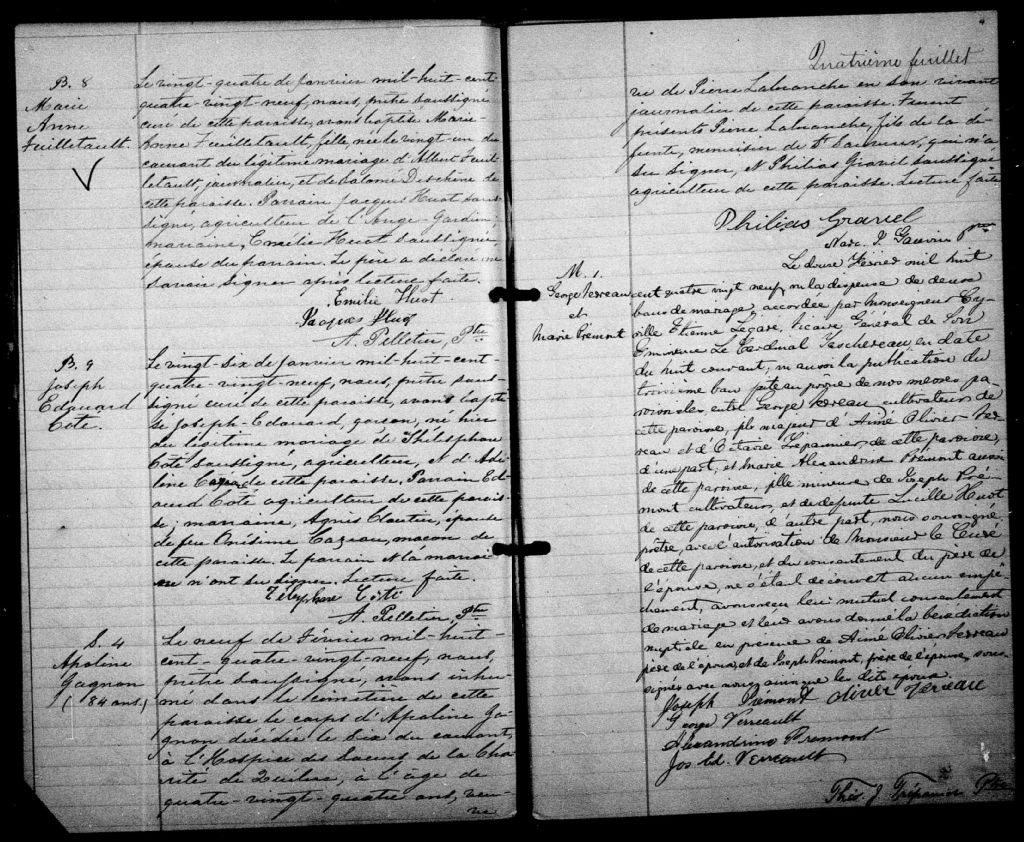 B. 8
Marie
Anne
Feuilletault.
Le vingt-quatre de Janvier mil-huit-cent-
quatre-vingt-neuf, nous, prêtre soussigné
curé de cette paroisse, avons baptisé Marie-
Anne Feuilletault, fille, née le vingt-un du
courant du légitime mariage d'Albert Feuil-
letault, journalier, et de Salomé Deschêne de
cette paroisse. Parrain Jacques Huot sous-
signé, agriculteur de l'Ange-Gardien,
marraine, Emélie Huot soussignée,
épouse du parrain. Le père a déclaré ne
savoir signer après lecture faite.
Emilie Huot.
Jacques Huot
A. Pelletier, Ptre
B. 9
Joseph
Edouard
Côté.
Le vingt-six de Janvier mil-huit-cent-
quatre-vingt-neuf, nous, prêtre sous-
signé curé de cette paroisse, avons bapti-
sé Joseph-Edouard, garçon, né hier
du légitime mariage de Thélesphore
Côté soussigné, agriculteur, et d'Adé-
line de cette paroisse. Parrain Ed-
ouard Côté agriculteur de cette parois-
se; marraine, Agnès Cloutier, épouse
de feu Onésime Cazeau, maçon de
cette paroisse. Le parrain et la marrai-
ne n'ont su signer. Lecture faite.
Télesphore Côté
A. Pelletier, Ptre
S. 4
Apoline
Gagnon
(84 ans.)
Le neuf de Février mil-huit-
cent-quatre-vingt-neuf, nous,
prêtre soussigné, avons inhu-
mé dans le cimetière de cette
paroisse le corps d'Apoline Ga-
gnon décédée le six du courant,
à l'Hospice des Soeurs de la Cha-
rité de Québec, à l'âge de
quatre-vingt-quatre ans, veu-
ve
4
Quatrième feuillet
ve de Pierre Labranche en son vivant
journalier de cette paroisse. Furent
présents Pierre Labranche, fils de la dé-
funte, menuisier de St Sauveur, qui n'a
su signer, et Philias Gravel soussigné
agriculteur de cette paroisse. Lecture faite
Philias Gravel
Narc. J. Gauvin ptre
M. 1.
George Verreau
et
Marie Prémont
Le douze Fevrier mil huit
cent quatre vingt neuf, vu la dispense de deux
bans de mariage, accordée par Monseigneur Cy-
rille Etienne Légaré, Vicaire Général de Son
Eminence Le Cardinal Taschereau, en date
du huit courant; vu aussi la publication du
troisième ban faite au prône de nos messes pa-
roissiales entre George Verreau cultivateur de
cette paroisse, fils majeur d'Aimé Olivier Ver-
reau et d'Octavie Trépannier de cette paroisse,
d'une part; et Marie Alexandrine Prémont aussi
de cette paroisse, fille mineure de Joseph Pré-
mont cultivateur, et de defunte Lucille Huot
de cette paroisse, d'autre part, nous soussigné,
prêtre, avec l'autorisation de Monsieur le Curé
de cette paroisse, et du consentement du père de
l'épouse, ne s'étant découvert aucun empê-
chement, avons reçu leur mutuel consentement
de mariage et leur avons donné la bénédiction
nuptiale en présence de Aimé Olivier Verreau
père de l'époux, et de Joseph Prémont, frère de l'épouse, sous-
signés avec nous, les dits époux.
Joseph Prémont Olivier Verreau
George Verreault
Alexandrine Premont
Jos Ed. Verreault
Théo. J Trépanier Ptre